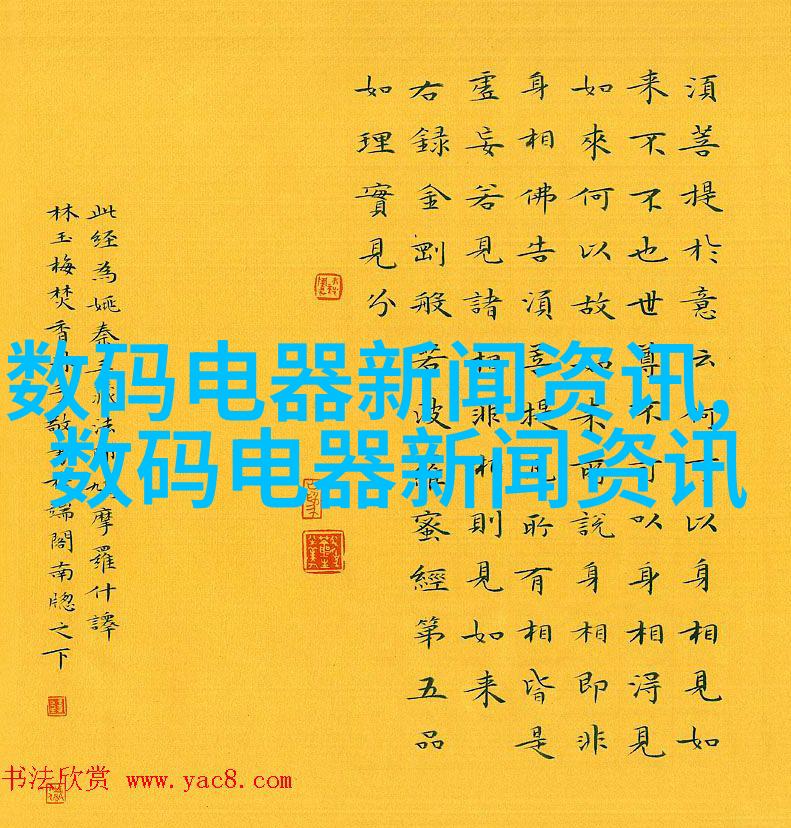 須菩提於意云何可以身相見如
来不不也世尊不可以身相得見
如來何以故如来所說身相即非
身相佛告須菩提凡所有相皆是
虛妄若見諸相非相則見如来
右録金剛般若波羅蜜經第五品
如理實見分
此经為姚秦三藏法師鳩摩羅什譯
林玉梅焚香敬書端閣南牕之下
数码电器新闻资讯,
数码电器新闻资讯
书法欣赏 www.yac8.com